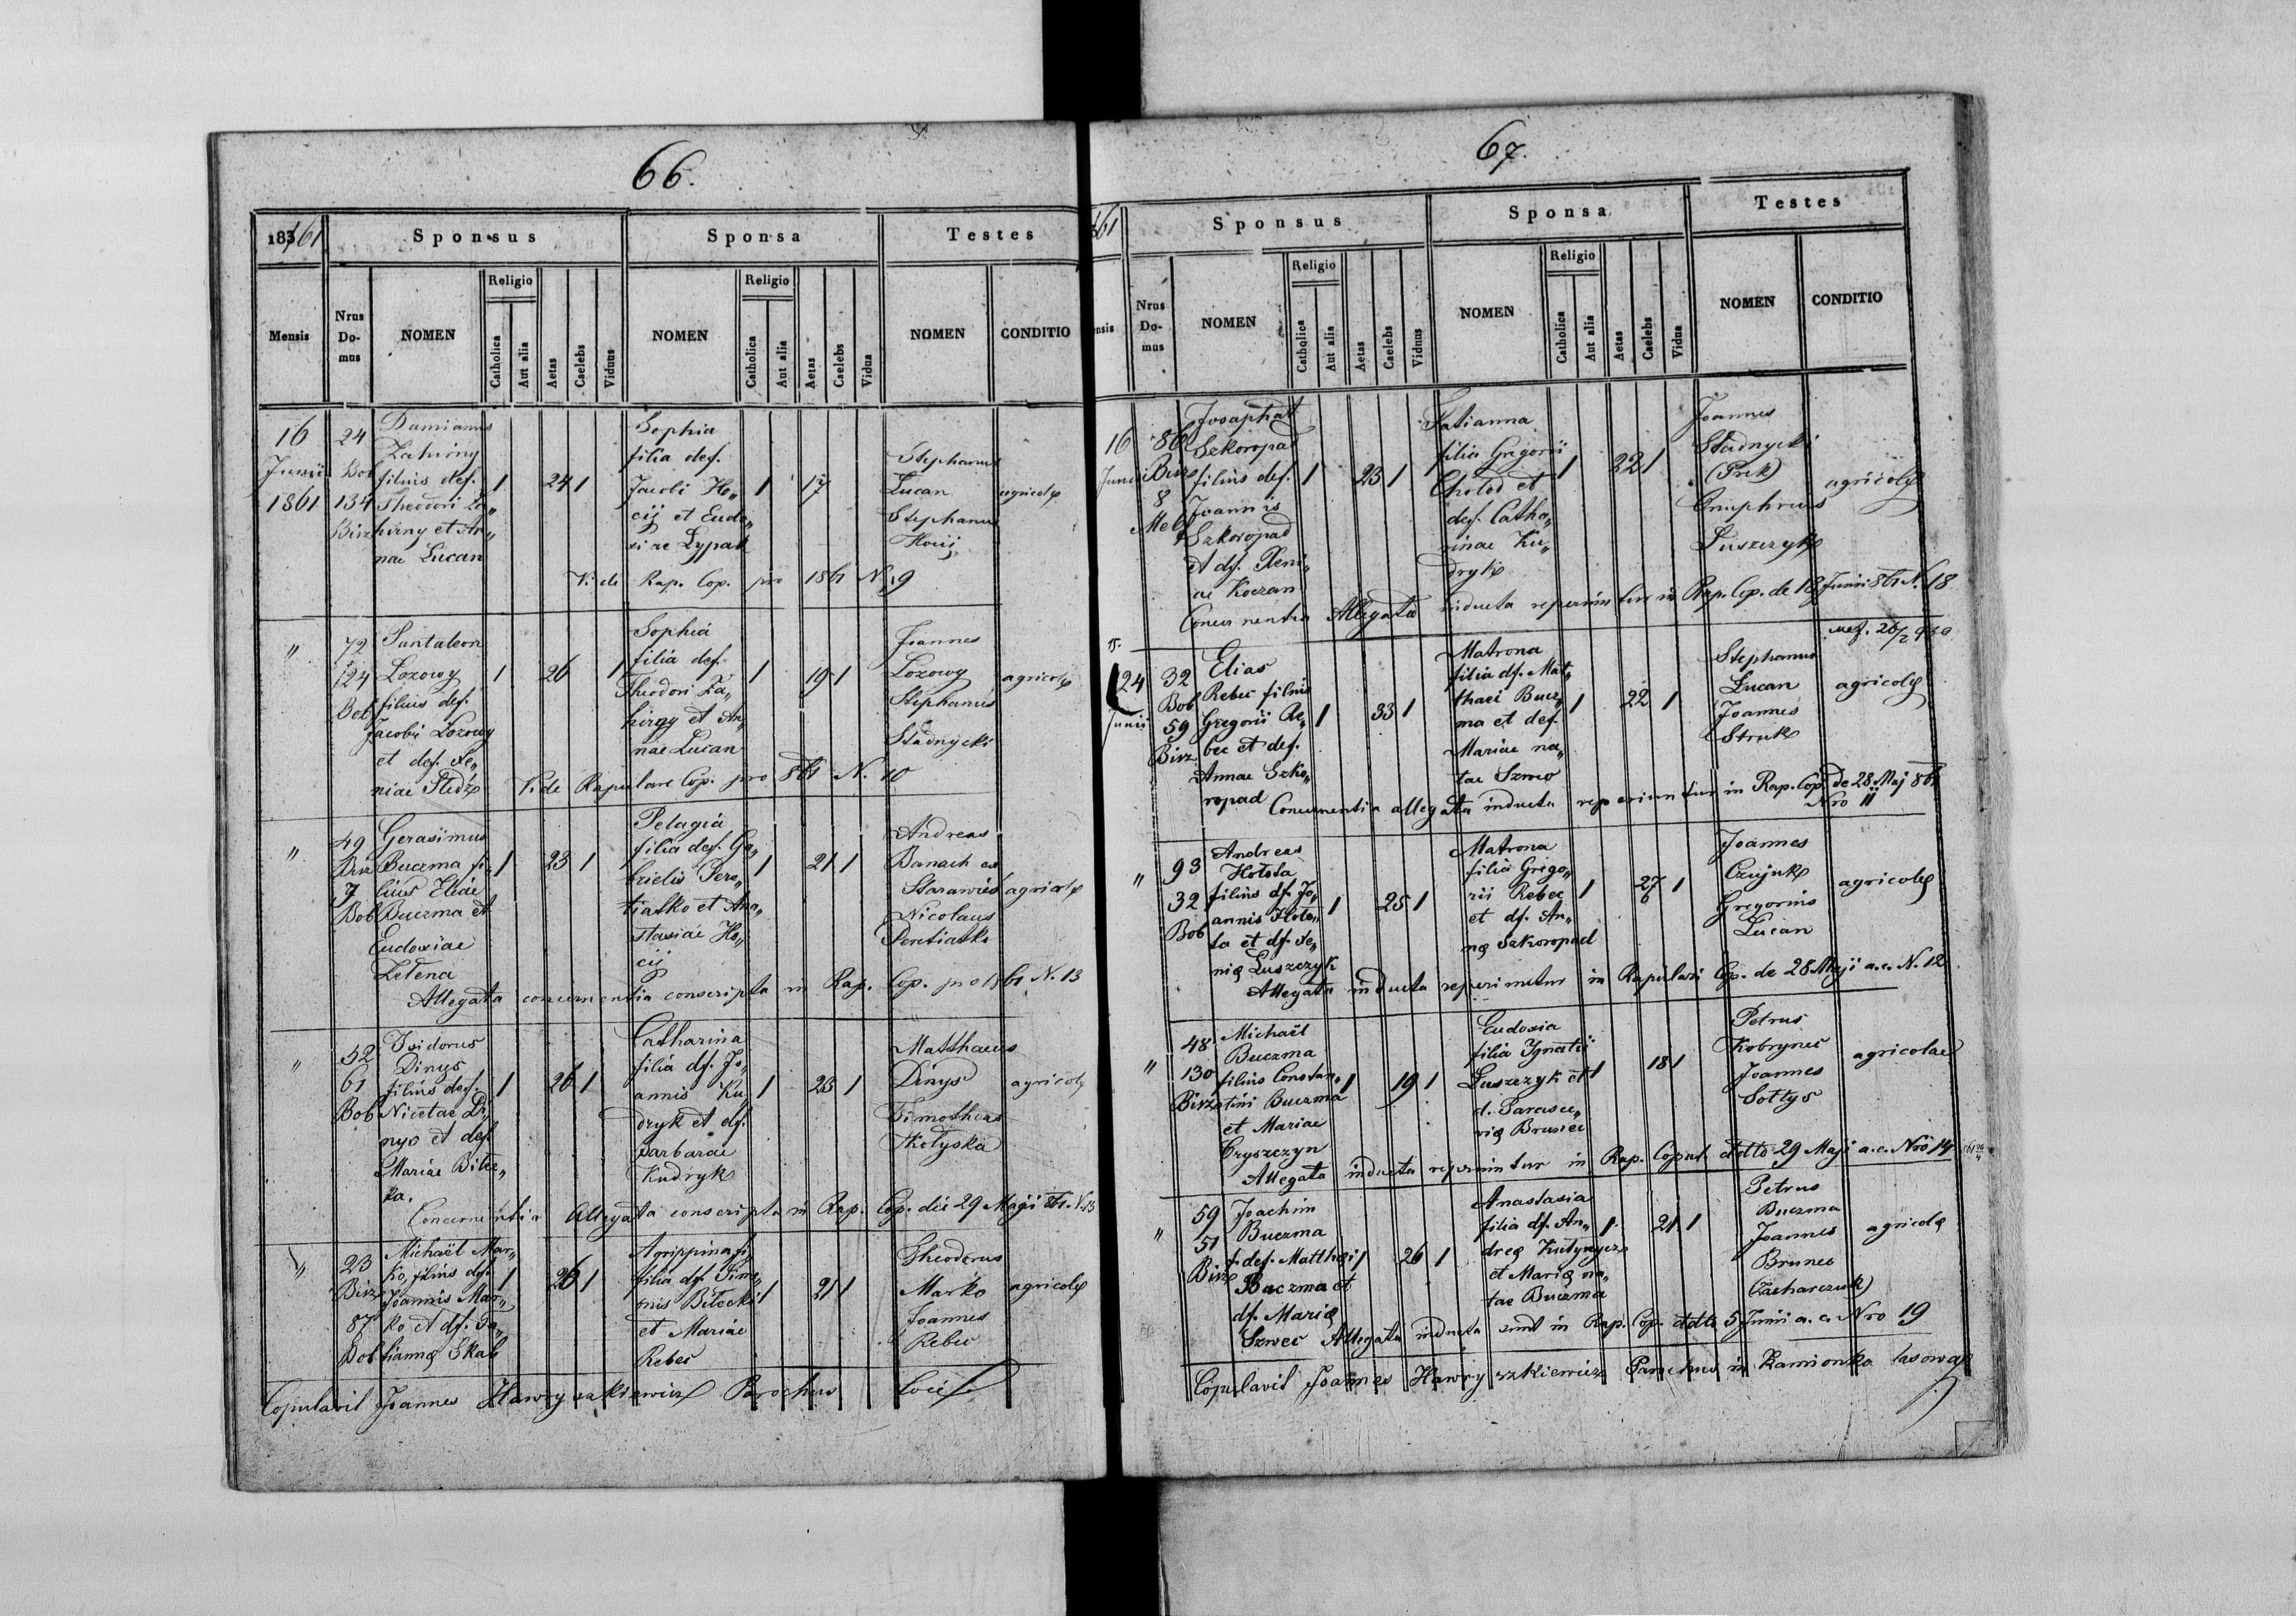 66.
183/61
Sponsus
Sponsa
Testes
Mensis
Nrus Do- mus
NOMEN
Religio
Catholica
Aut alia
Aetas
Caelebs
Viduus
NOMEN
Religio
Catholica
Aut alia
Aetas
Caelebs
Vidua
NOMEN
CONDITIO
16 Junii 1861
24 Bob
134 Birz
Damianus
Zahirny
filius def.
Theodori Za„
hirny et An„
nae Lucan
1 24 1
Sophia
filia def.
Jacobi Ho„
cij et Eudo„
xi ae Lypak
1 17
Stephanus
Lucan
Stephanus
Hocij
agricolę
Vide Rap. Cop. pro 1861 N. 9
„
72
124
Bob
Pantaleon
Lozowy
filius def.
Jacobi Lozowy
et def. Xe„
niae Fledź
1 26 1
Sophia
filia def.
Theodori Za„
hirny et An„
nae Lucan
1 19 1
Joannes
Lozowy
Stephanus
Stadnycki
agricolę
Vide Rapulare Cop. pro 861 N. 10
„
49
Birz
7
Bob
Gerasimus
Buczma fi„
lius Eliae
Buczma et
Eudoxiae
Zelena
1 23 1
Pelagia
filia def. Ga„
brielis Pere„
tiatko et Ana„
stasiae Ho„
cij
1 21 1
Andreas
Banach ex
Starawieś
Nicolaus
Peretiatko
agricolę
Allegata concernentia conscripta in Rap. Cop. pro 1861 N. 13
„
52
61
Bob
Isidorus
Dinys
filius def.
Nicetae Di„
nys et def.
Mariae Bitc„
za.
1 26 1
Catharina
filia df. Jo„
annis Ku„
dryk et df.
Barbarae
Kudryk
1 23 1
Matthaeus
Dinys
Timotheus
Kołyska
agricolę
Concernentia Allegata conscripta in Rap. Cop. dei 29 Maji 861. N. 13
„
23
Birz
87
Bob
Michaël Mar„
ko, filius df.
Joannis Mar„
ko et df. Ta„
tiannę Skab
1 26 1
Agrippina fi„
filia df. Sime„
onis Biłecki
et Mariae
Rebec
1 21 1
Theodorus
Marko
Joannes
Rebec
agricolę
Copulavit Joannes Hawryszkiewicz Parochus Loci
67.
861
Sponsus
Sponsa
Testes
ensis
Nrus Do- mus
NOMEN
Religio
Catholica
Aut alia
Aetas
Caelebs
Viduus
NOMEN
Religio
Catholica
Aut alia
Aetas
Caelebs
Vidua
NOMEN
CONDITIO
16 Junii
86
Birz
8
Mel
Josaphat
Szkoropad
filius def.
Joannis
Szkoropad
et df. Xeni„
ae Koczan
1 23 1
Tatianna
filia Grigorii
Chołod et
def. Catha„
rinae Ku„
dryk
1 22 1
Joannes
Stadnycki
(Prik)
Onuphrius
Łuszczyk
agricolę
Concernentia Allegata inducta reperiuntur in Rap. Cop. de 18 Junii 861 N. 18
24 Junii
32
Bob
59
Birz
Elias
Rebec filius
Gregorii Re„
bec et def.
Annae Szko„
ropad
1 33 1
Matrona
filia df. Mat„
thaei Bucz„
ma et def.
Mariae na„
tae Szwec
1 22 1
Stephanus
Lucan
Joannes
Struk
agricolę
Concernentia allegata inducta reperiuntur in Rap. Cop. de 28 Maj 861
Nro 11
„
93
32
Bob
Andreas
Hołota
filius df. Jo„
annis Hoło„
ta et df. Xe„
nię Łuszczyk
1 25 1
Matrona
filia Grego„
rii Rebec
et df. An„
nę Szkoropad
1 27 1
Joannes
Czujuk
Gregorius
Lucan
agricolę
Allegata inducta reperiuntur in Rapulari Cop. de 28 Maji a.c. N. 12
„
48
130
Birz
Michaël
Buczma
filius Constan„
tini Buczma
et Mariae
Czyszczyn
1 19 1
Eudoxia
filia Ignatii
Łuszczyk et
d. Parasce„
vię Brusiec
1 18 1
Petrus
Kobryneć
Joannes
Sołtys
agricolae
Allegata inducta reperiuntur in Rap. Copul. ddto 29 Maji a.c. Nro 14
„
59
51
Birz
Joachim
Buczma
f. def. Matthęi
Buczma et
df. Marię
Szweć
1 26 1
Anastasia
filia df. An„
dreę Kutynycz
et Marię na„
tae Buczma
1 21 1
Petrus
Buczma
Joannes
Brunec
(Zacharczuk)
agricolę
Allegata inducta sunt in Rap. Cop. ddto 5 Junii a. c. Nro 19
Copulavit Joannes Hawryszkiewicz Parochus in Kamionka lasowa